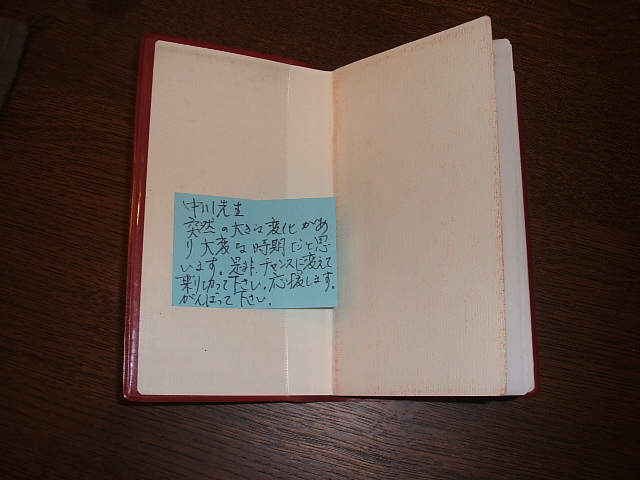 中川先生
突然の大きな変化があ
り大変な時期だと思
います。是非、チャンスに変えて
乗り切って下さい。応援します。
がんばって下さい。